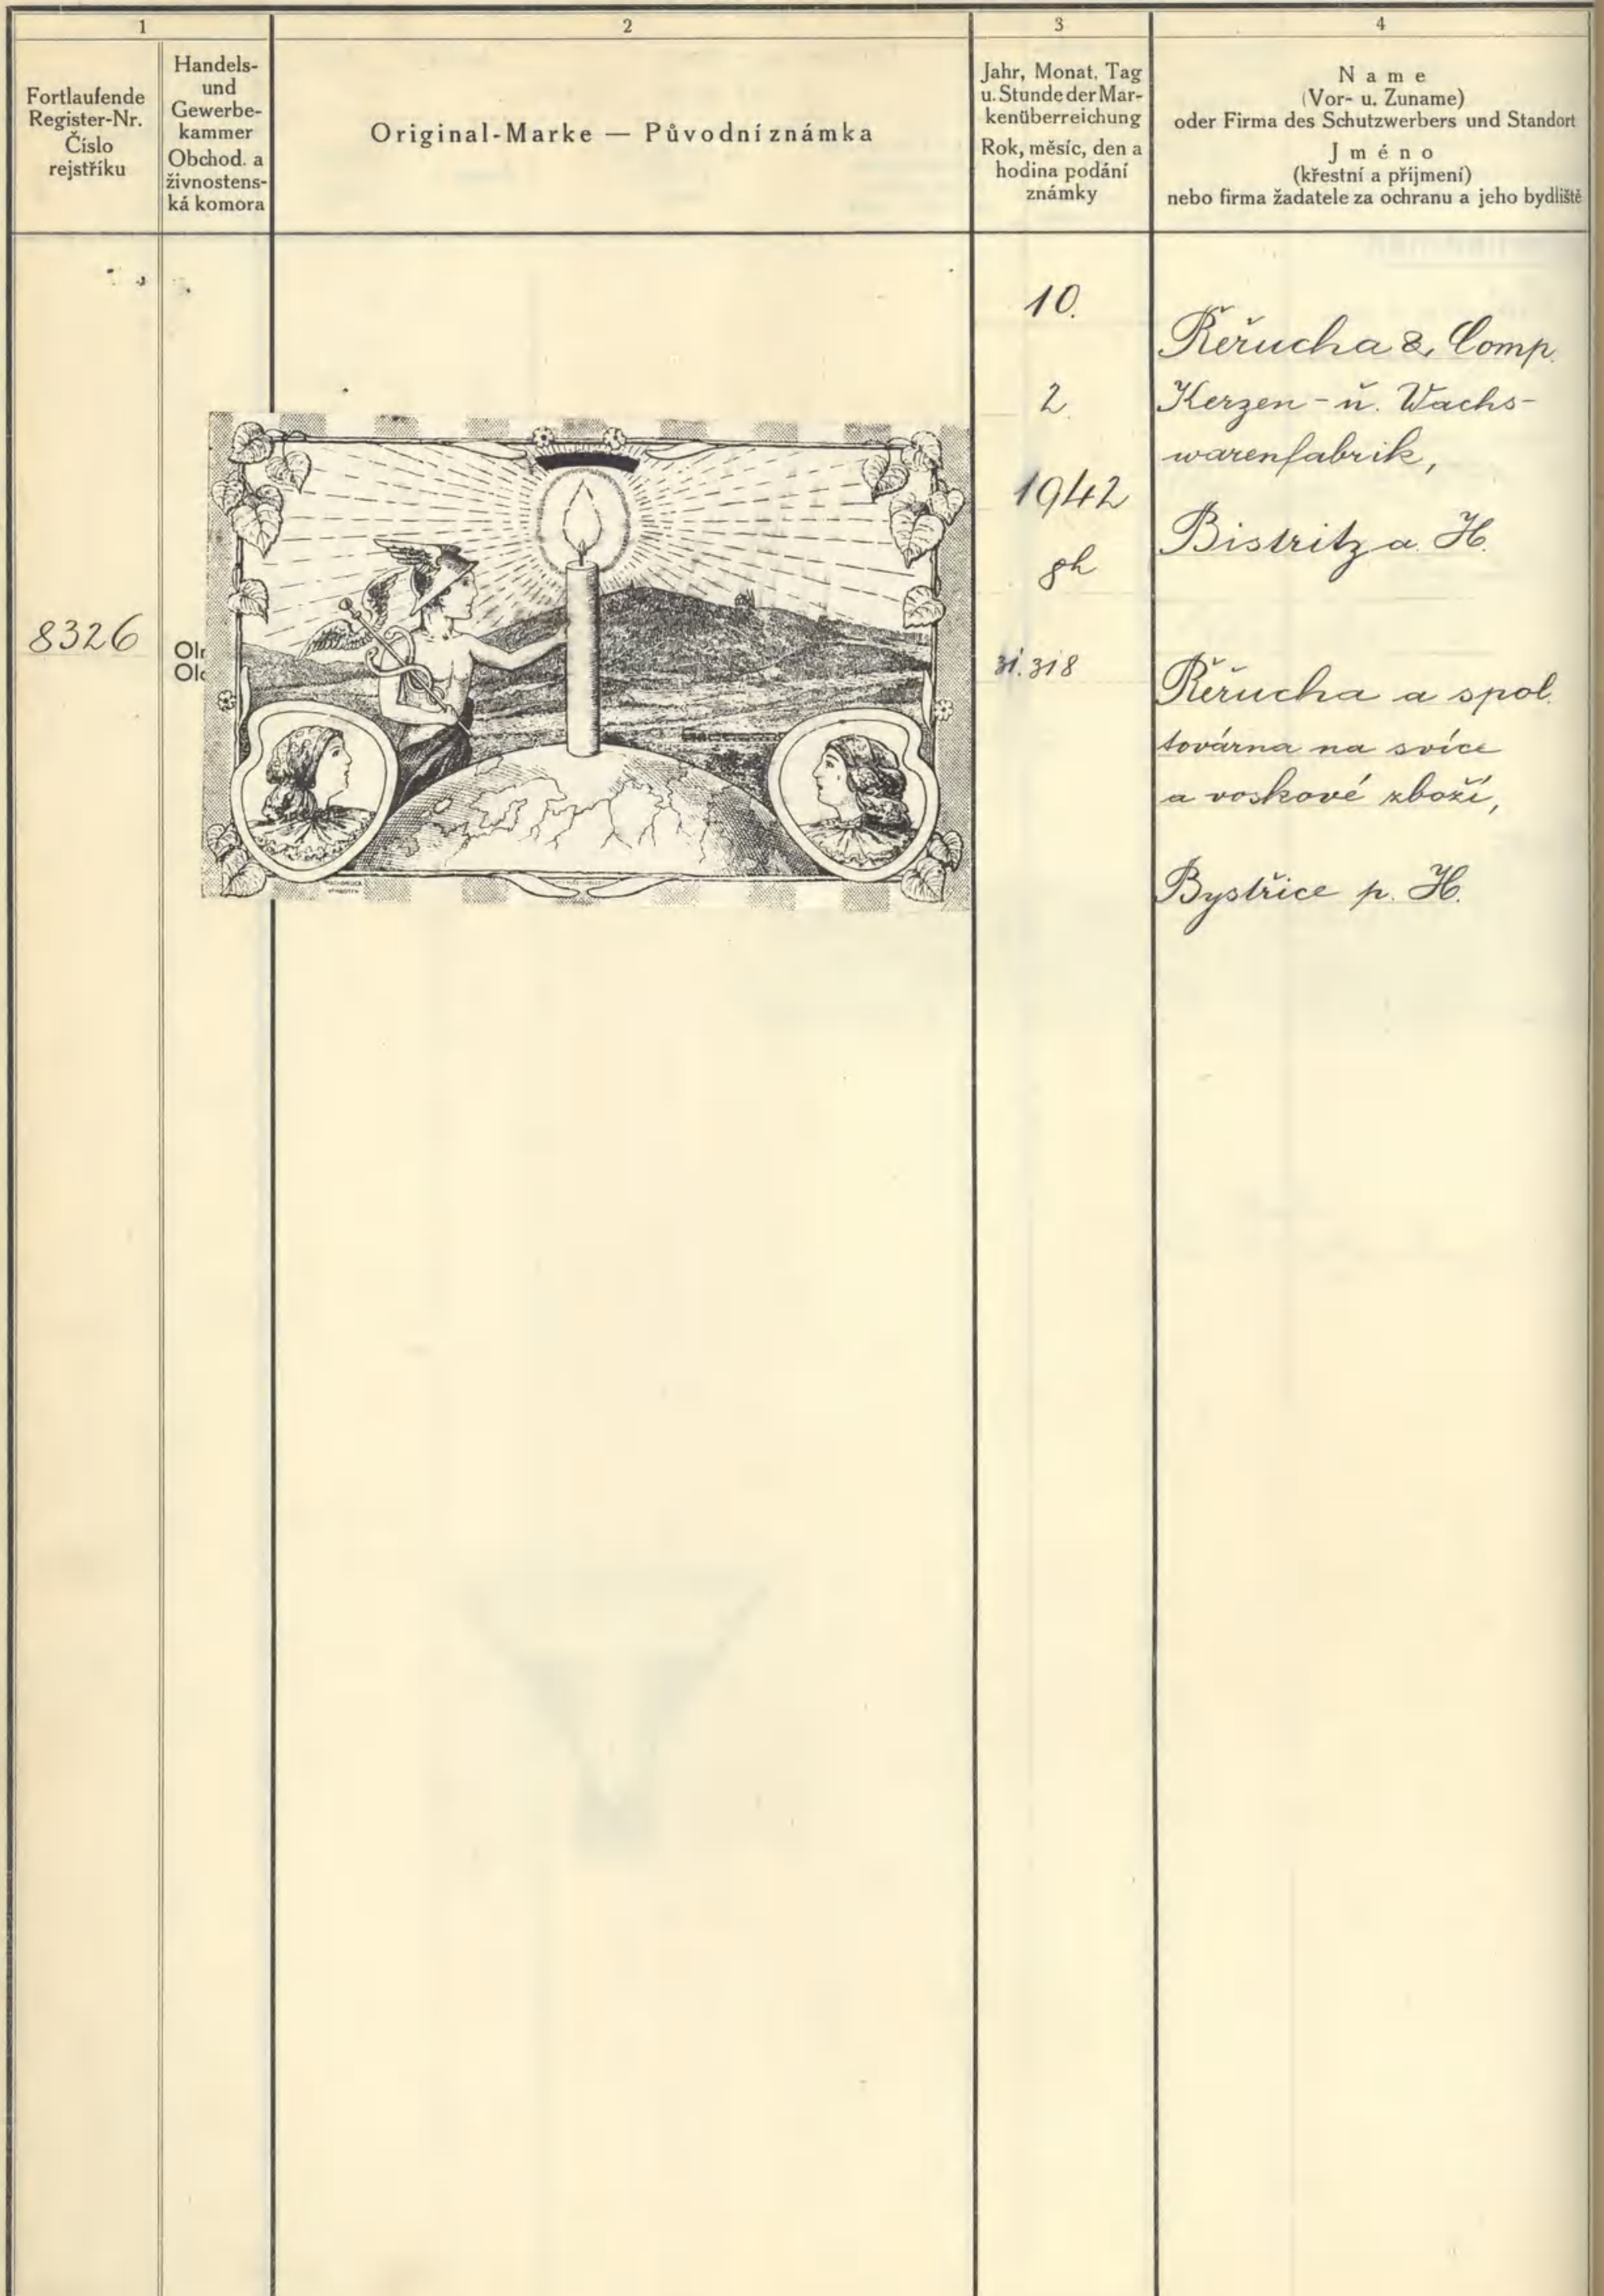 1
2
3
4
Fortlaufende
Register-Nr.
Číslo
rejstříku
Handels-
und
Gewerbe-
kammer
Obchod. a
živnostens-
ká komora
Original-Marke — Původní známka
Jahr, Monat, Tag
u. Stunde der Mar-
kenüberreichung
Rok, měsíc, den a
hodina podání
známky
Name
(Vor- u. Zuname)
oder Firma des Schutzwerbers und Standort
Jméno
(křestní a příjmení)
nebo firma žadatele za ochranu a jeho bydliště
8326
10.
2.
1942
8h
31.318
Řeřucha & Comp.
Kerzen- ŭ. Wachs-
warenfabrik,
Bistritz a. H.
Řeřucha a spol.
továrna na svíce
a voskové zboží,
Bystřice p. H.